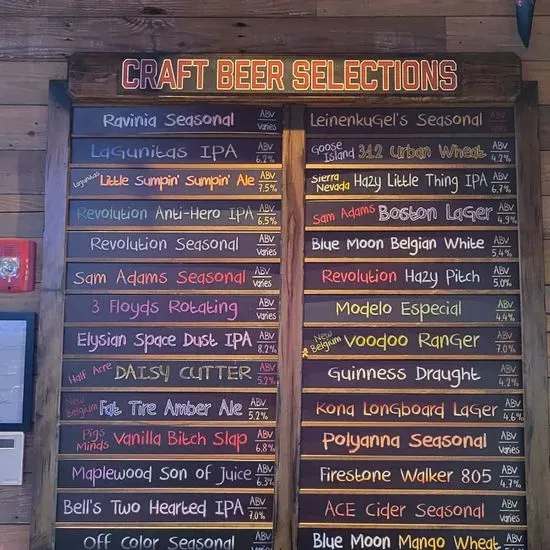 CRAFT BEER SELECTIONS
Ravinia Seasonal ABV varies
Lagunitas IPA ABV 6.2%
Lagunitas Little Sumpin' Sumpin' Ale ABV 7.5%
Revolution Anti-Hero IPA ABV 6.5%
Revolution Seasonal ABV varies
Sam Adams Seasonal ABV varies
3 Floyds Rotating ABV varies
Elysian Space Dust IPA ABV 8.2%
Half Acre DAISY CUTTER ABV 5.2%
New Belgium Fat Tire Amber Ale ABV 5.2%
Pigs Minds Vanilla Bitch Slap ABV 6.8%
Maplewood Son of Juice ABV 6.3%
Bell's Two Hearted IPA ABV 7.0%
Off Color Seasonal ABV
Leinenkugel's Seasonal
Goose Island 312 Urban Wheat ABV 4.2%
Sierra Nevada Hazy Little Thing IPA ABV 6.7%
Sam Adams Boston Lager ABV 4.9%
Blue Moon Belgian White ABV 5.4%
Revolution Hazy Pitch ABV 5.0%
Modelo Especial ABV 4.4%
New Belgium Voodoo Ranger ABV 7.0%
Guinness Draught ABV 4.2%
Kona Longboard Lager ABV 4.6%
Polyanna Seasonal ABV varies
Firestone Walker 805 ABV 4.7%
ACE Cider Seasonal ABV varies
Blue Moon Mango Wheat ABV